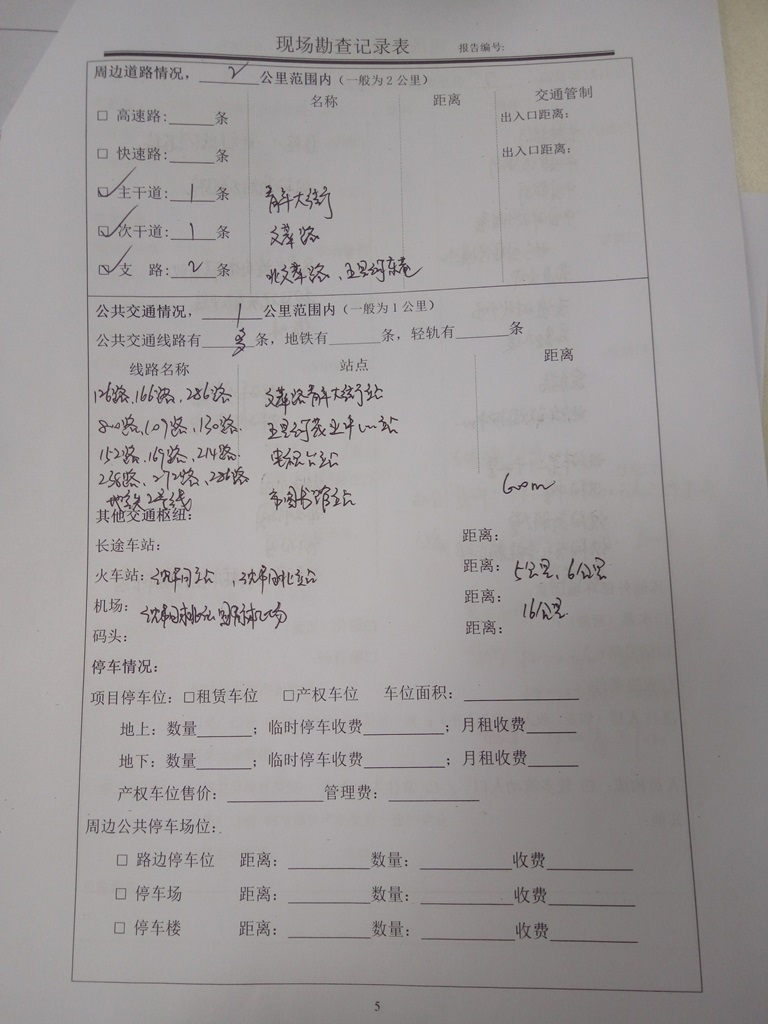 现场勘查记录表 报告编号:
周边道路情况，2公里范围内（一般为2公里）
名称 距离 交通管制
□ 高速路:____条 出入口距离：
□ 快速路:____条 出入口距离：
☑ 主干道: 1 条 青年大街
☑ 次干道: 1 条 文萃路
☑ 支 路: 2 条 北文萃路、五里河东巷
公共交通情况，1公里范围内（一般为1公里）
公共交通线路有 多 条，地铁有____条，轻轨有____条
线路名称 站点 距离
126路、166路、286路 文萃路青年大街站
800路、109路、130路、 五里河茂业中心站
152路、169路、214路、 电视台站
238路、272路、286路
地铁2号线 市图书馆站 600m
其他交通枢纽:
长途车站: 距离：
火车站: 沈阳站、沈阳北站 距离： 5公里、6公里
机场: 沈阳桃仙国际机场 距离： 16公里
码头: 距离：
停车情况:
项目停车位: □租赁车位 □产权车位 车位面积：________
地上：数量____；临时停车收费______；月租收费____
地下：数量____；临时停车收费______；月租收费____
产权车位售价：________管理费：________
周边公共停车场位:
□ 路边停车位 距离：______数量：______收费______
□ 停车场 距离：______数量：______收费______
□ 停车楼 距离：______数量：______收费______
5